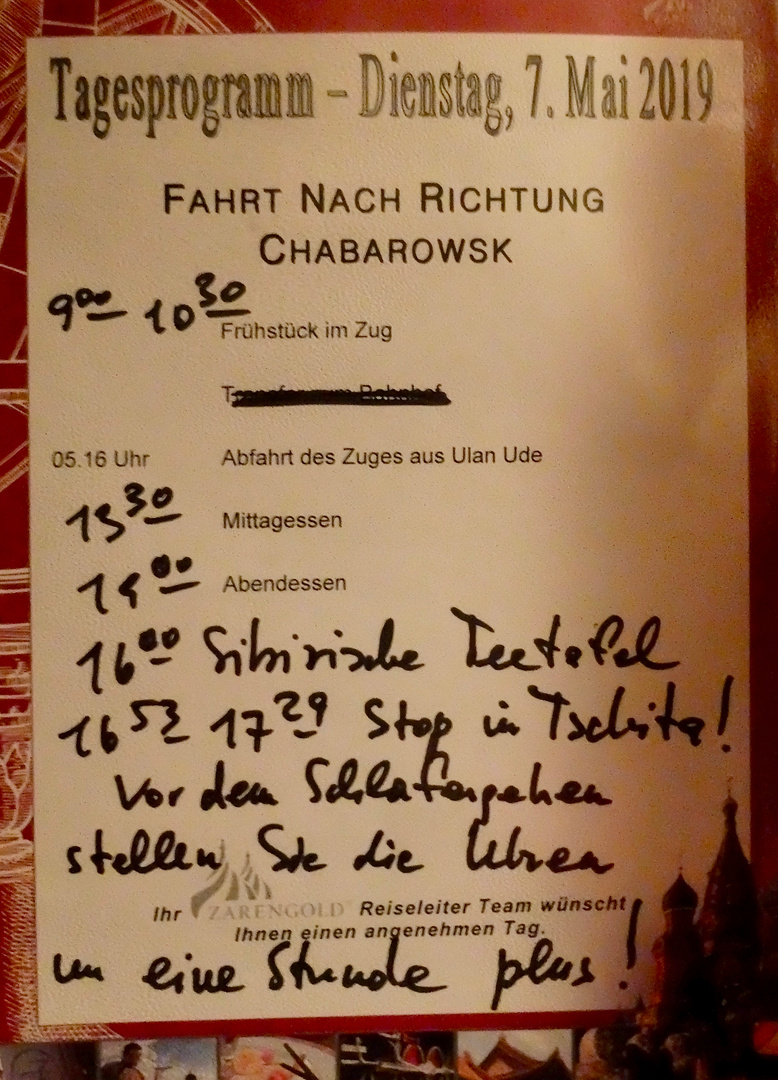 Tagesprogramm – Dienstag, 7. Mai 2019
FAHRT NACH RICHTUNG
CHABAROWSK
9⁰⁰ 10³⁰ Frühstück im Zug
Transfer zum Bahnhof
05.16 Uhr Abfahrt des Zuges aus Ulan Ude
13³⁰ Mittagessen
19⁰⁰ Abendessen
16⁰⁰ Sibirische Teetafel
16⁵³ 17²⁹ Stop in Tschita!
Vor dem Schlafengehen
stellen Sie die Uhren
Ihr ZARENGOLD Reiseleiter Team wünscht
Ihnen einen angenehmen Tag.
um eine Stunde plus!